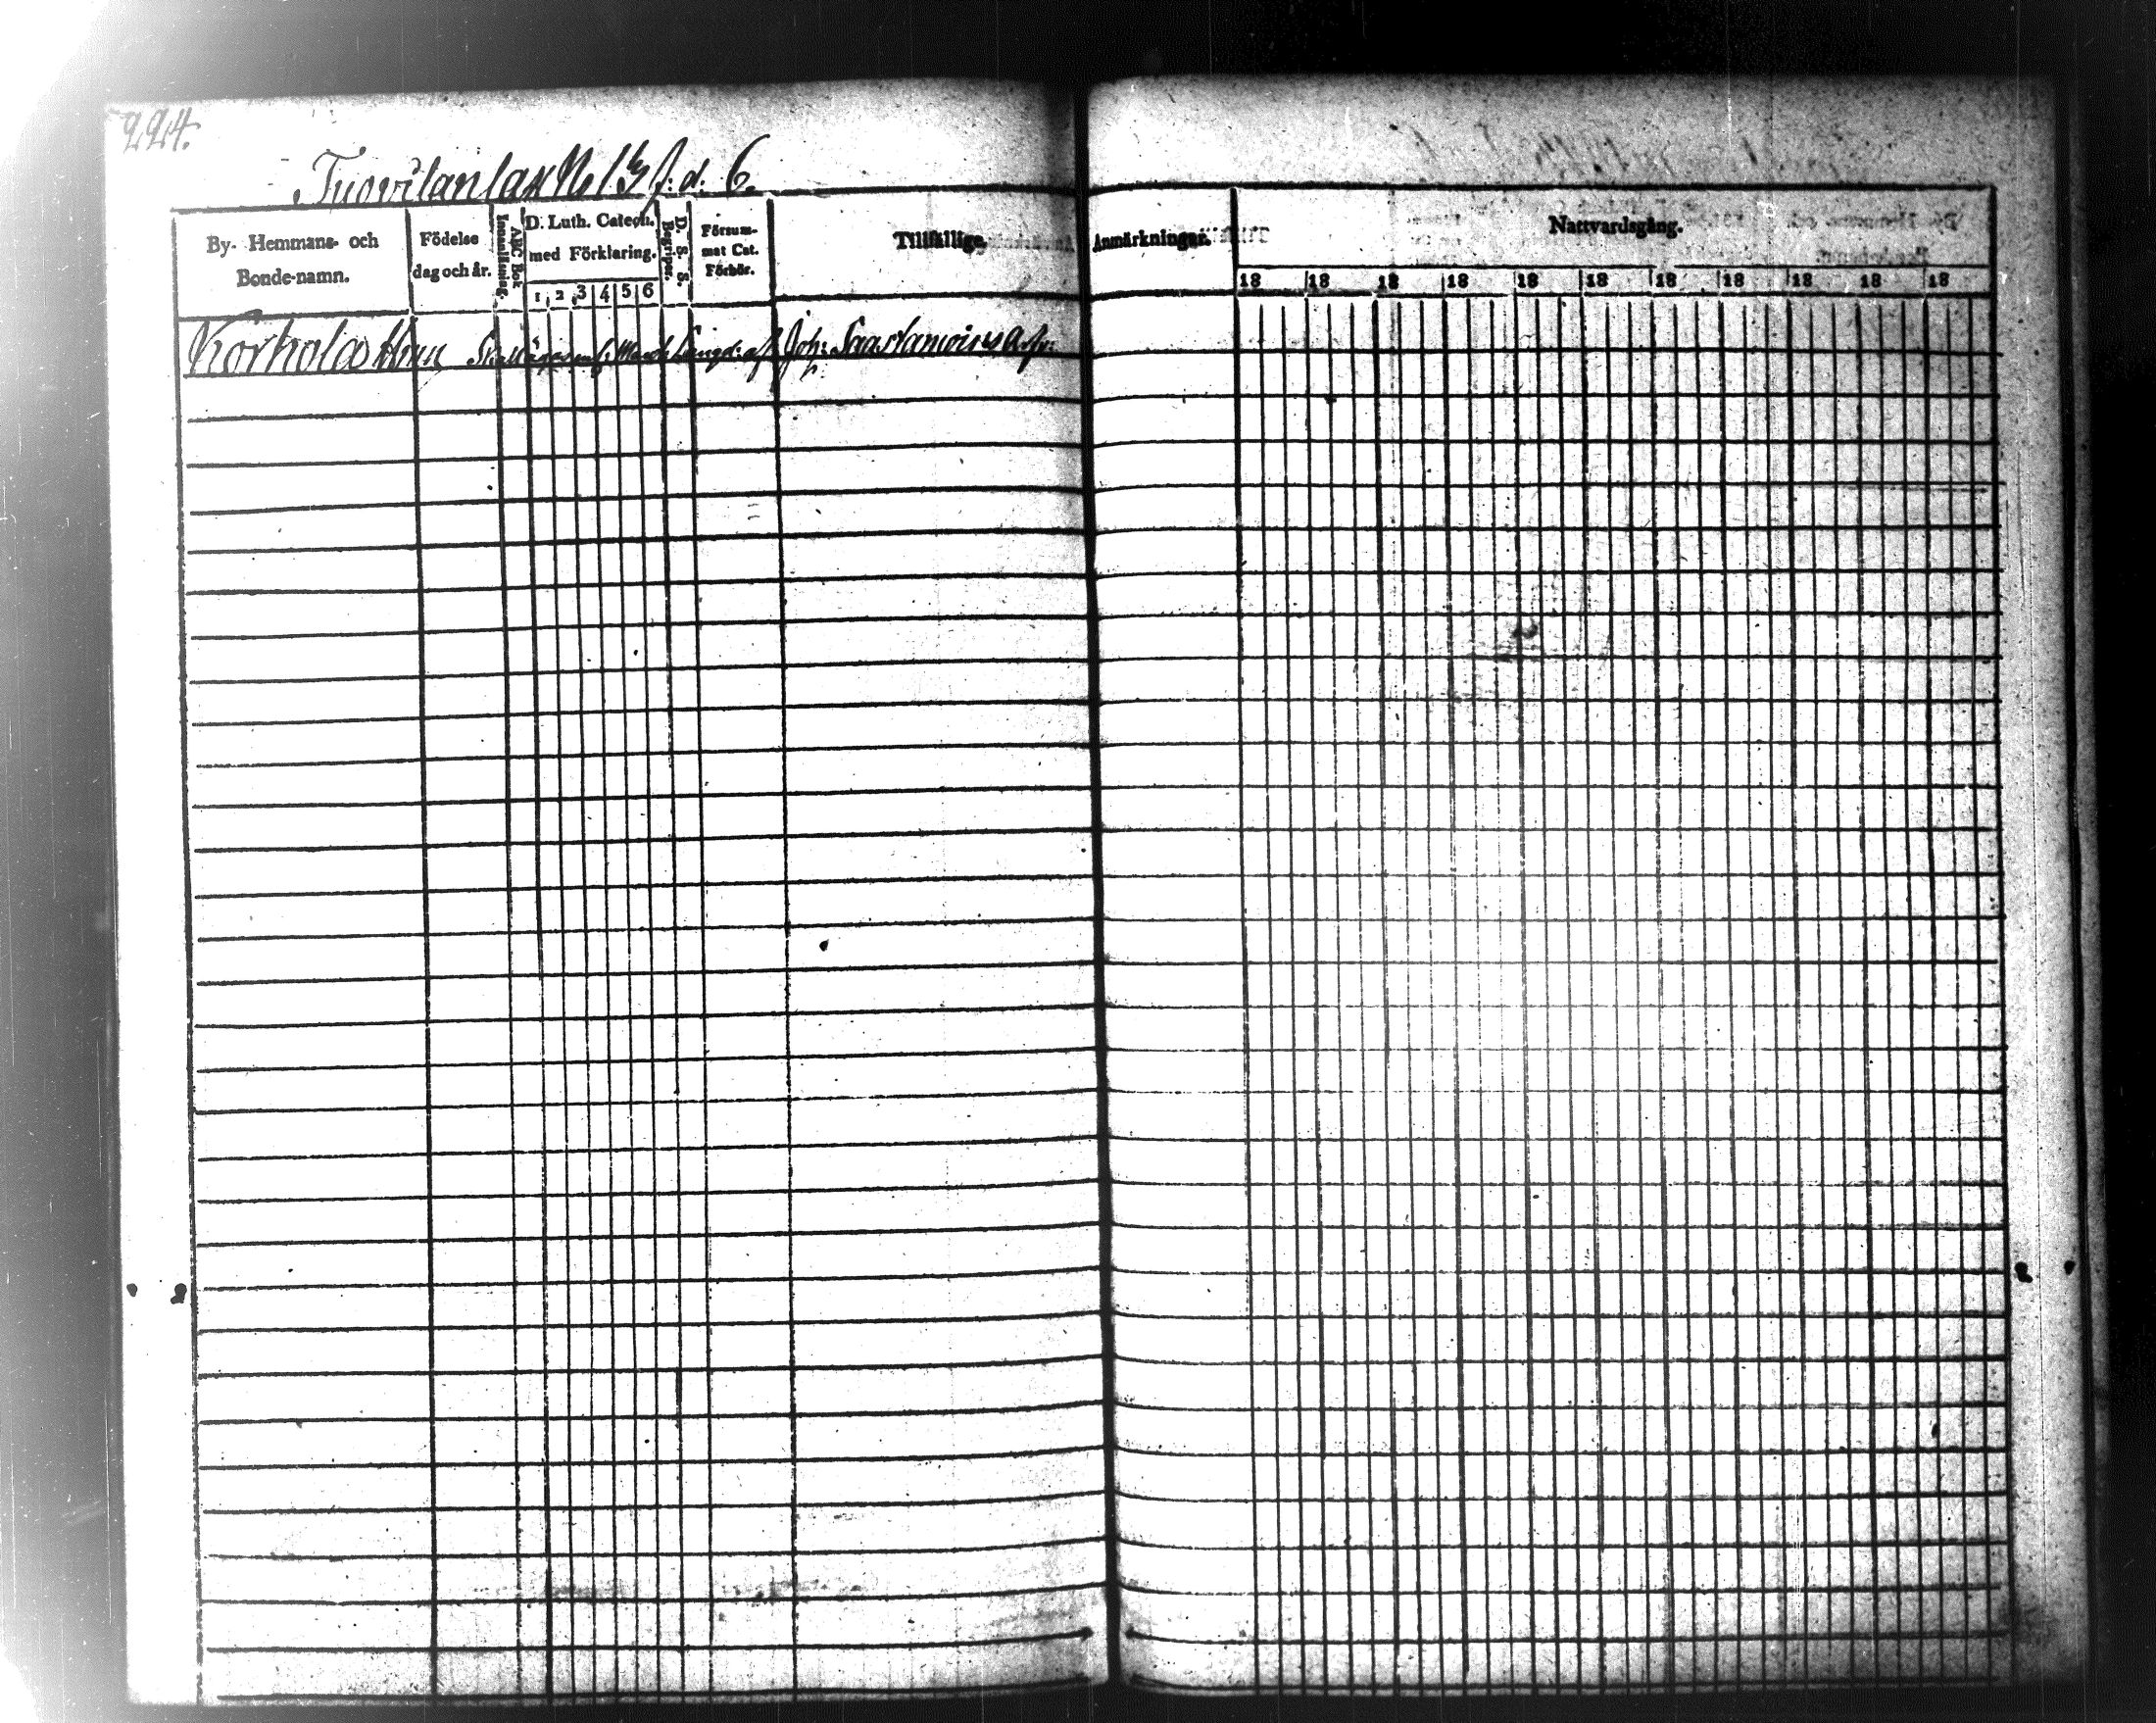 224.
Tuovilanlax No 13 f. d. 6.
By- Hemmans- och Bonde-namn.
Födelse dag och år.
Innanläsning.
ABC Bok
D. Luth. Catech. med Förklaring.
1 2 3 4 5 6
Begriper.
D. S. S.
Försummat Cat. Förhör.
Tillfällige.
Anmärkningar.
Nattvardsgång.
18 18 18 18 18 18 18 18 18 18 18
Korhola Hem Joh: Saastamoises